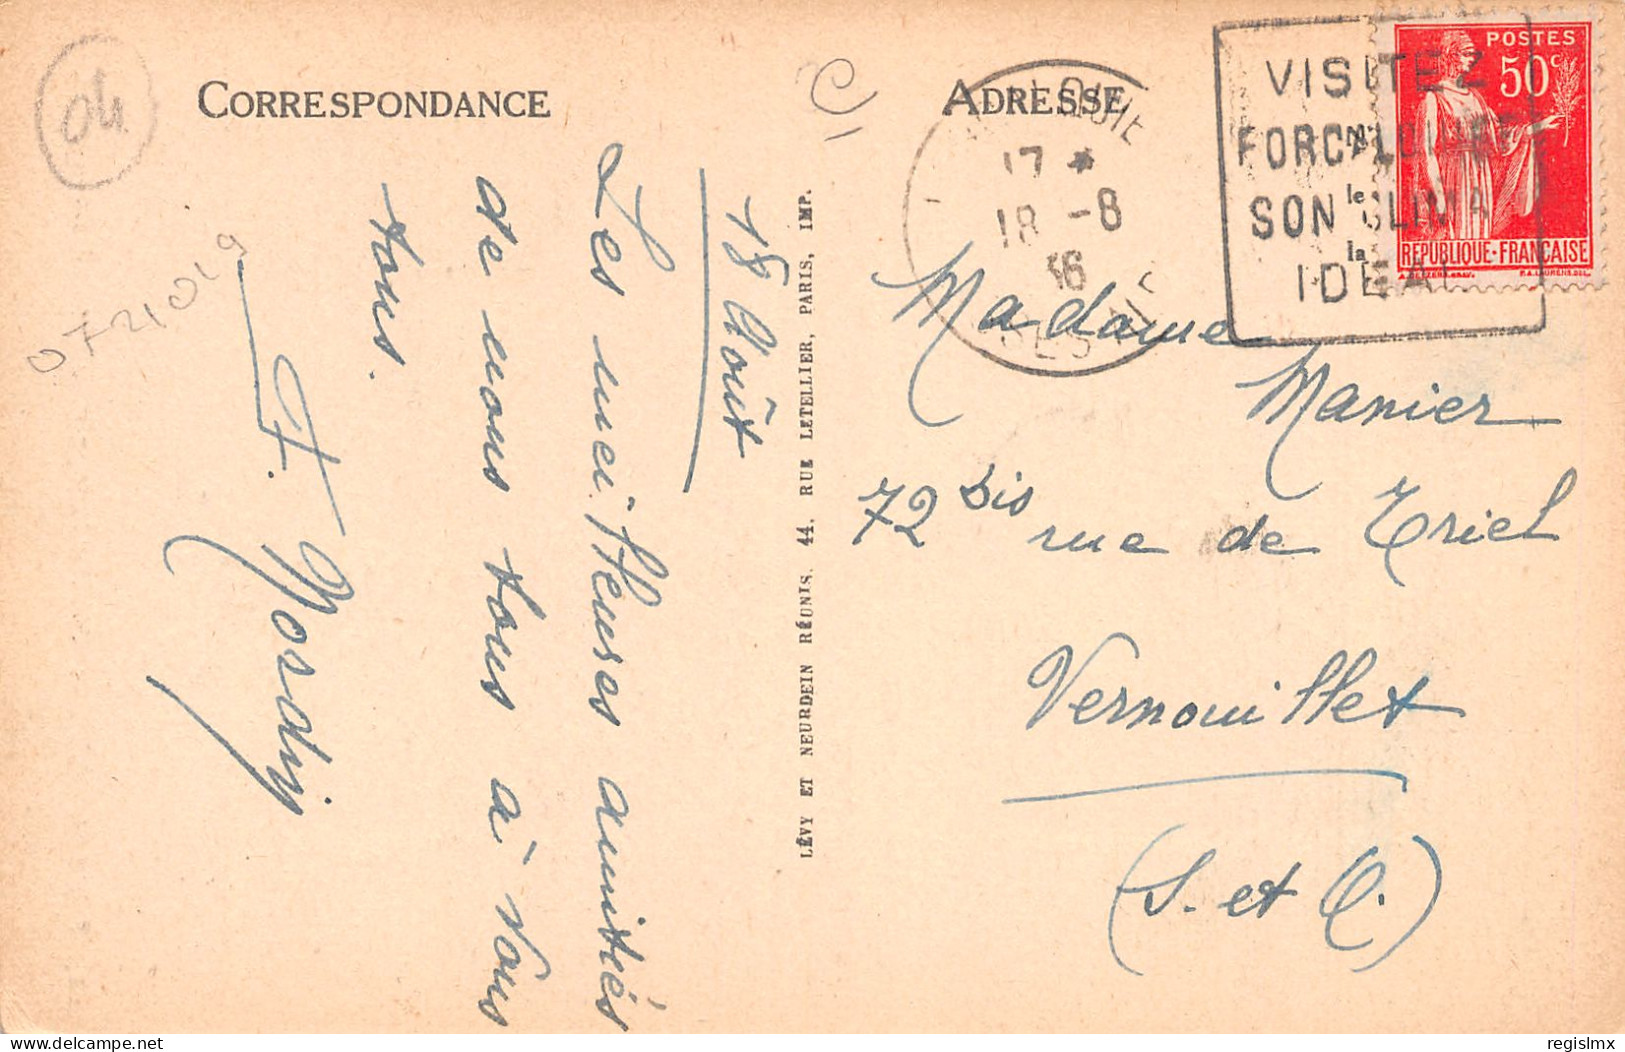 04
CORRESPONDANCE
ADRESSE
18 Août
Les meilleures amitiés
de nous tous à vous
tous.
0721019
LÉVY ET NEURDEIN RÉUNIS, 44, RUE LETELLIER, PARIS, IMP.
17 *
18 -8
36
VISITEZ
FORCALQUIER
SON CLIMAT
IDEAL
le
la
POSTES
50c
REPUBLIQUE-FRANÇAISE
Madame
Manier
72 bis rue de Triel
Vernouillet
(S. et O.)
delcampe.net
regislmx